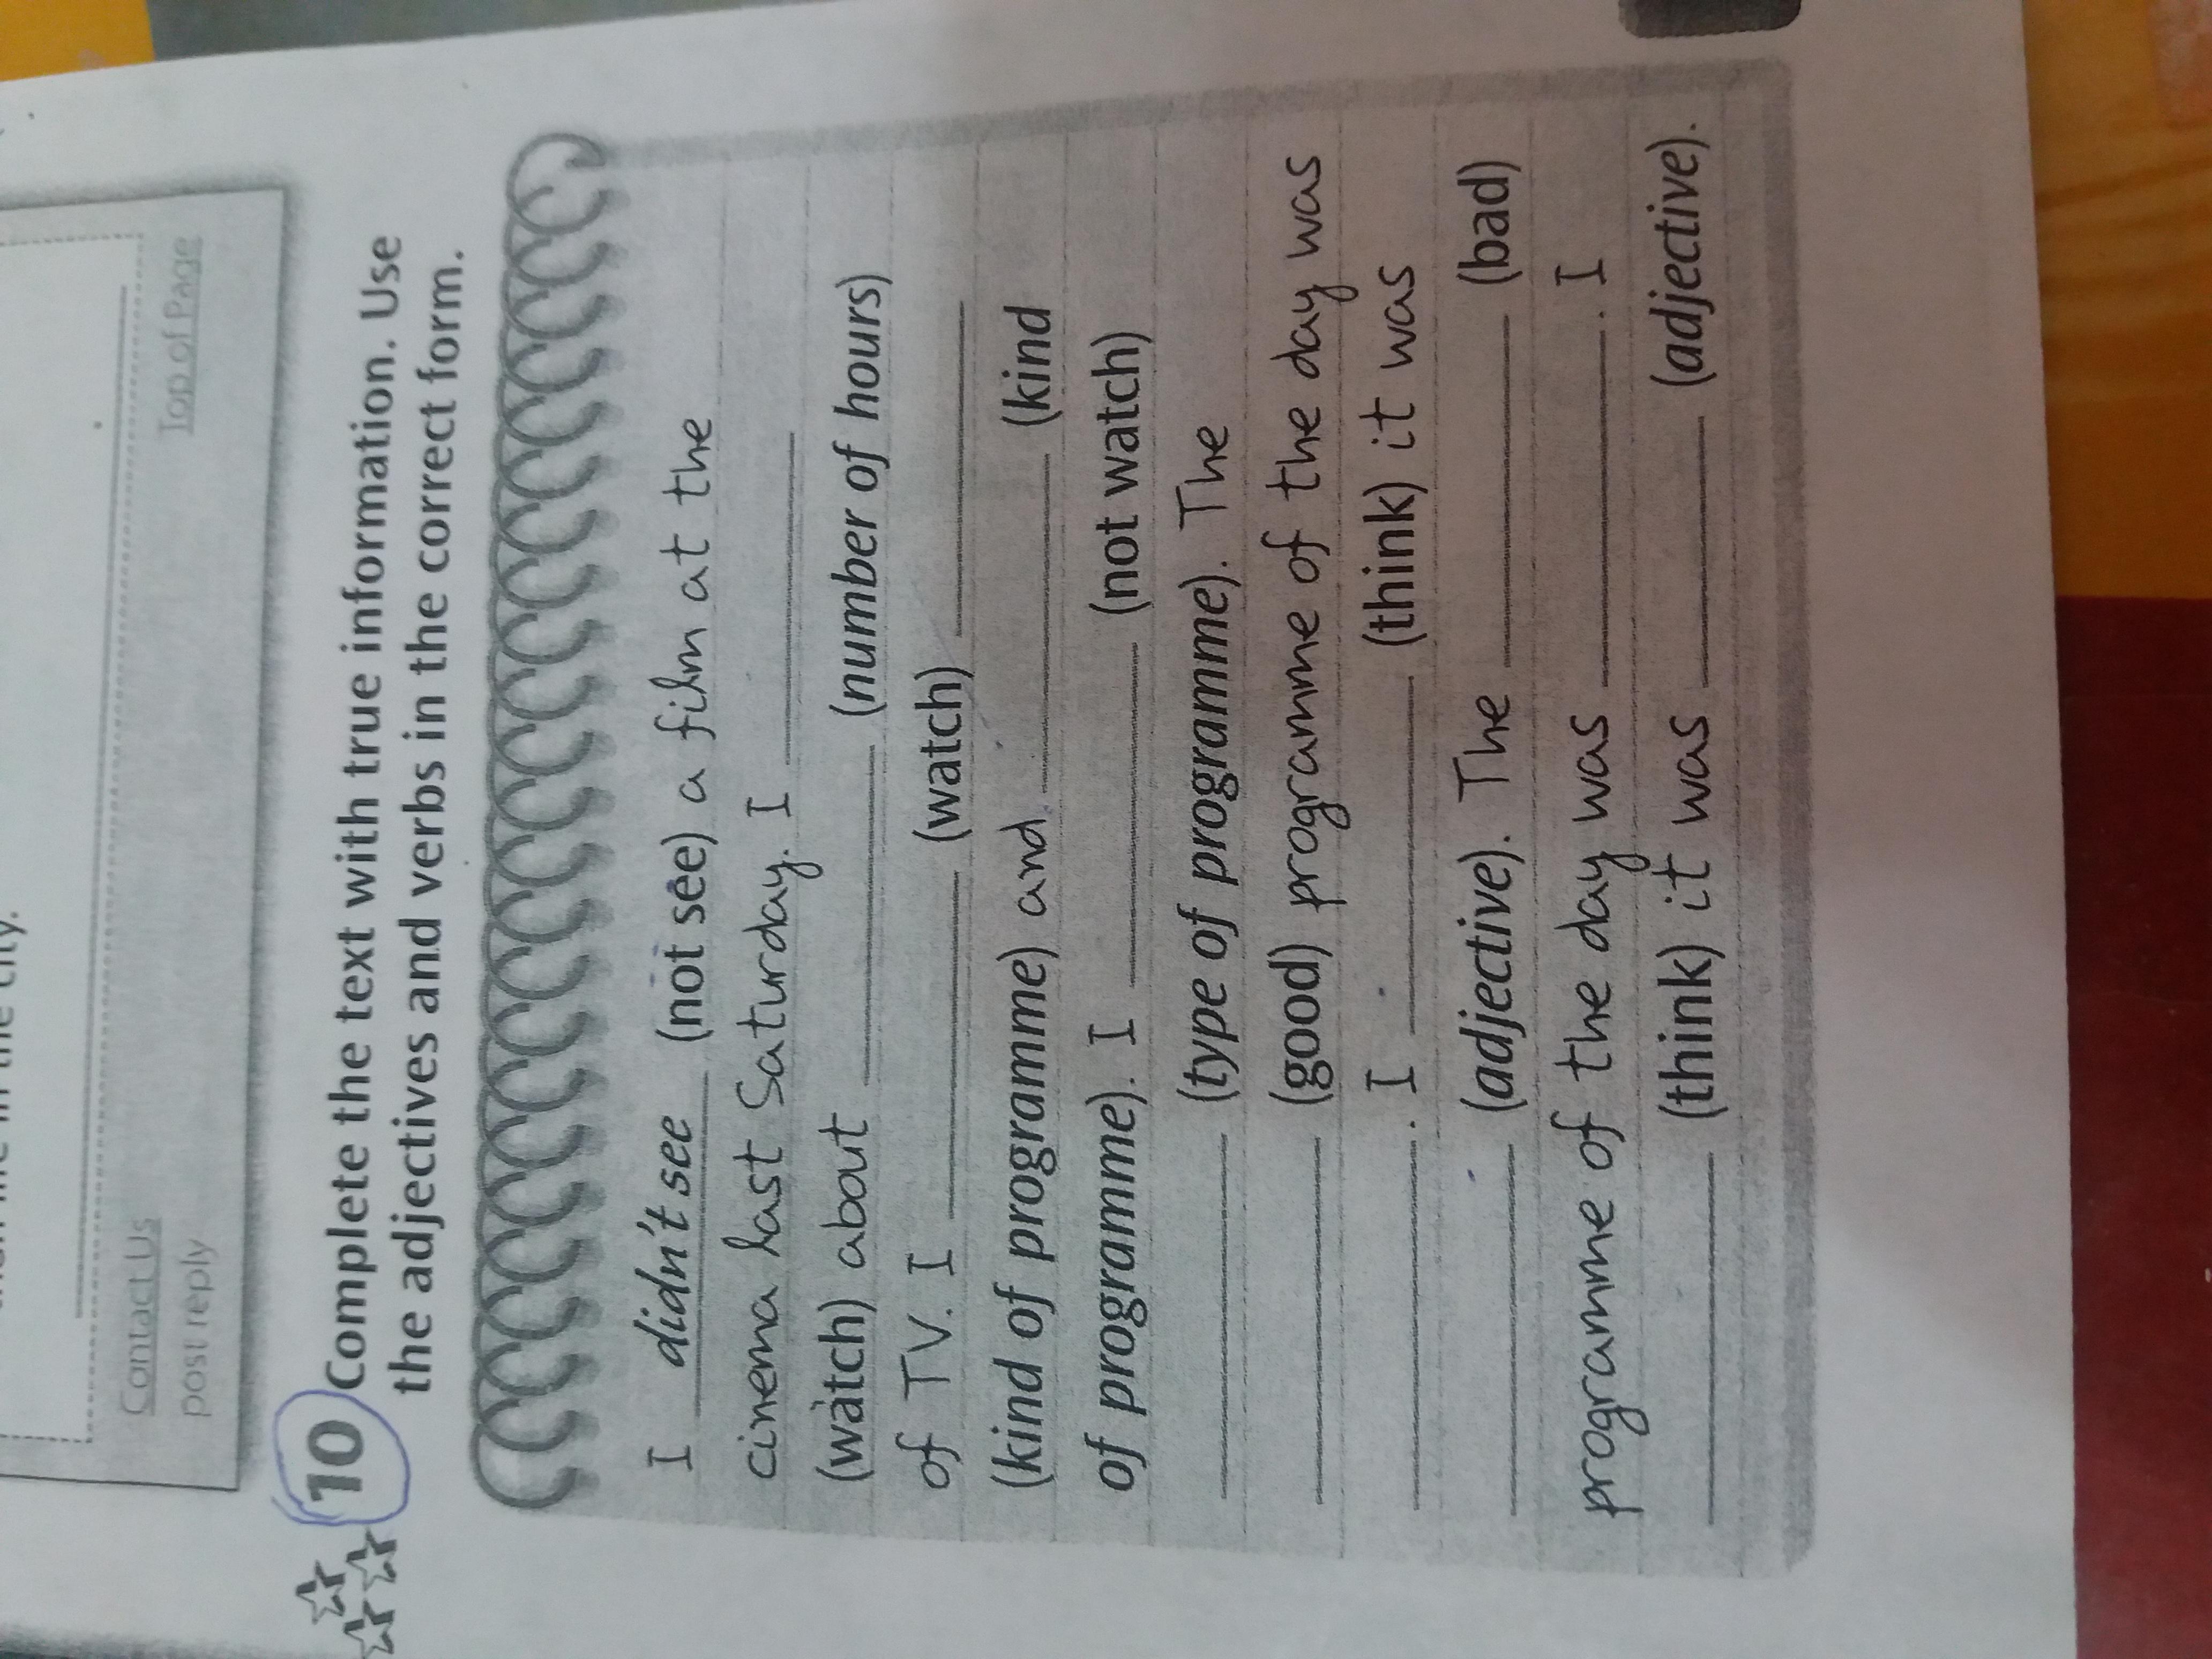 Top of Page
Contact Us
post reply
10 Complete the text with true information. Use
the adjectives and verbs in the correct form.
I didn't see (not see) a film at the
cinema last Saturday. I ________
(watch) about ________ (number of hours)
of TV. I ________ (watch) ________
(kind of programme) and ________ (kind
of programme). I ________ (not watch)
________ (type of programme). The
________ (good) programme of the day was
________. I ________ (think) it was
________ (adjective). The ________ (bad)
programme of the day was ________. I
________ (think) it was ________ (adjective).